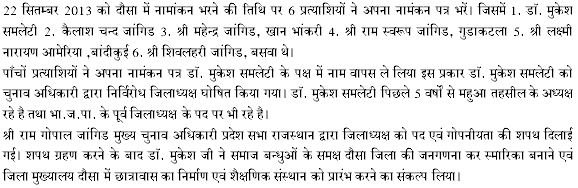 22 सितम्बर 2013 को दौसा में नामांकन भरने की तिथि पर 6 प्रत्याशियों ने अपना नामांकन पत्र भरें। जिसमें 1. डॉ. मुकेश
समलेटी 2. कैलाश चन्द जांगिड 3. श्री महेन्द्र जांगिड, खान भांकरी 4. श्री राम स्वरूप जांगिड, गुडाकटला 5. श्री लक्ष्मी
नारायण आमेरिया ,बांदीकुई 6. श्री शिवलहरी जांगिड, बसवा थे।
पाँचों प्रत्याशियों ने अपना नामंकन पत्र डॉ. मुकेश समलेटी के पक्ष में नाम वापस ले लिया इस प्रकार डॉ. मुकेश समलेटी को
चुनाव अधिकारी द्वारा निर्विरोध जिलाध्यक्ष घोषित किया गया। डॉ. मुकेश समलेटी पिछले 5 वर्षो से महुआ तहसील के अध्यक्ष
रहे है तथा भा.ज.पा. के पूर्व जिलाध्यक्ष के पद पर भी रहे है।
श्री राम गोपाल जांगिड मुख्य चुनाव अधिकारी प्रदेश सभा राजस्थान द्वारा जिलाध्यक्ष को पद एवं गोपनीयता की शपथ दिलाई
गई। शपथ ग्रहण करने के बाद डॉ. मुकेश जी ने समाज बन्धुओं के समक्ष दौसा जिला की जनगणना कर स्मारिका बनाने एवं
जिला मुख्यालय दौसा में छात्रावास का निर्माण एवं शैक्षणिक संस्थान को प्रारंभ करने का संकल्प लिया।